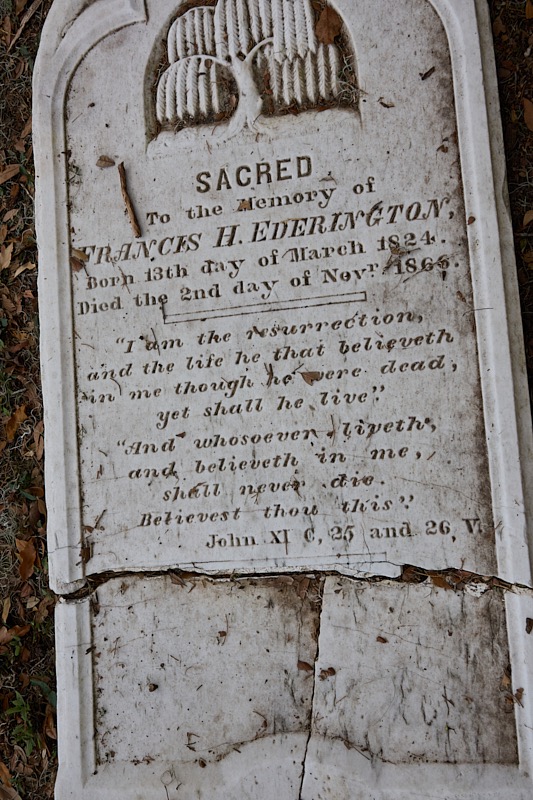 SACRED
To the Memory of
FRANCIS H. EDERINGTON,
Born 13th day of March 1824.
Died the 2nd day of Novr. 1865.
"I am the resurrection,
and the life he that believeth
in me though he were dead,
yet shall he live."
"And whosoever liveth,
and believeth in me,
shall never die.
Believest thou this"?
John XI C, 25 and 26, V.